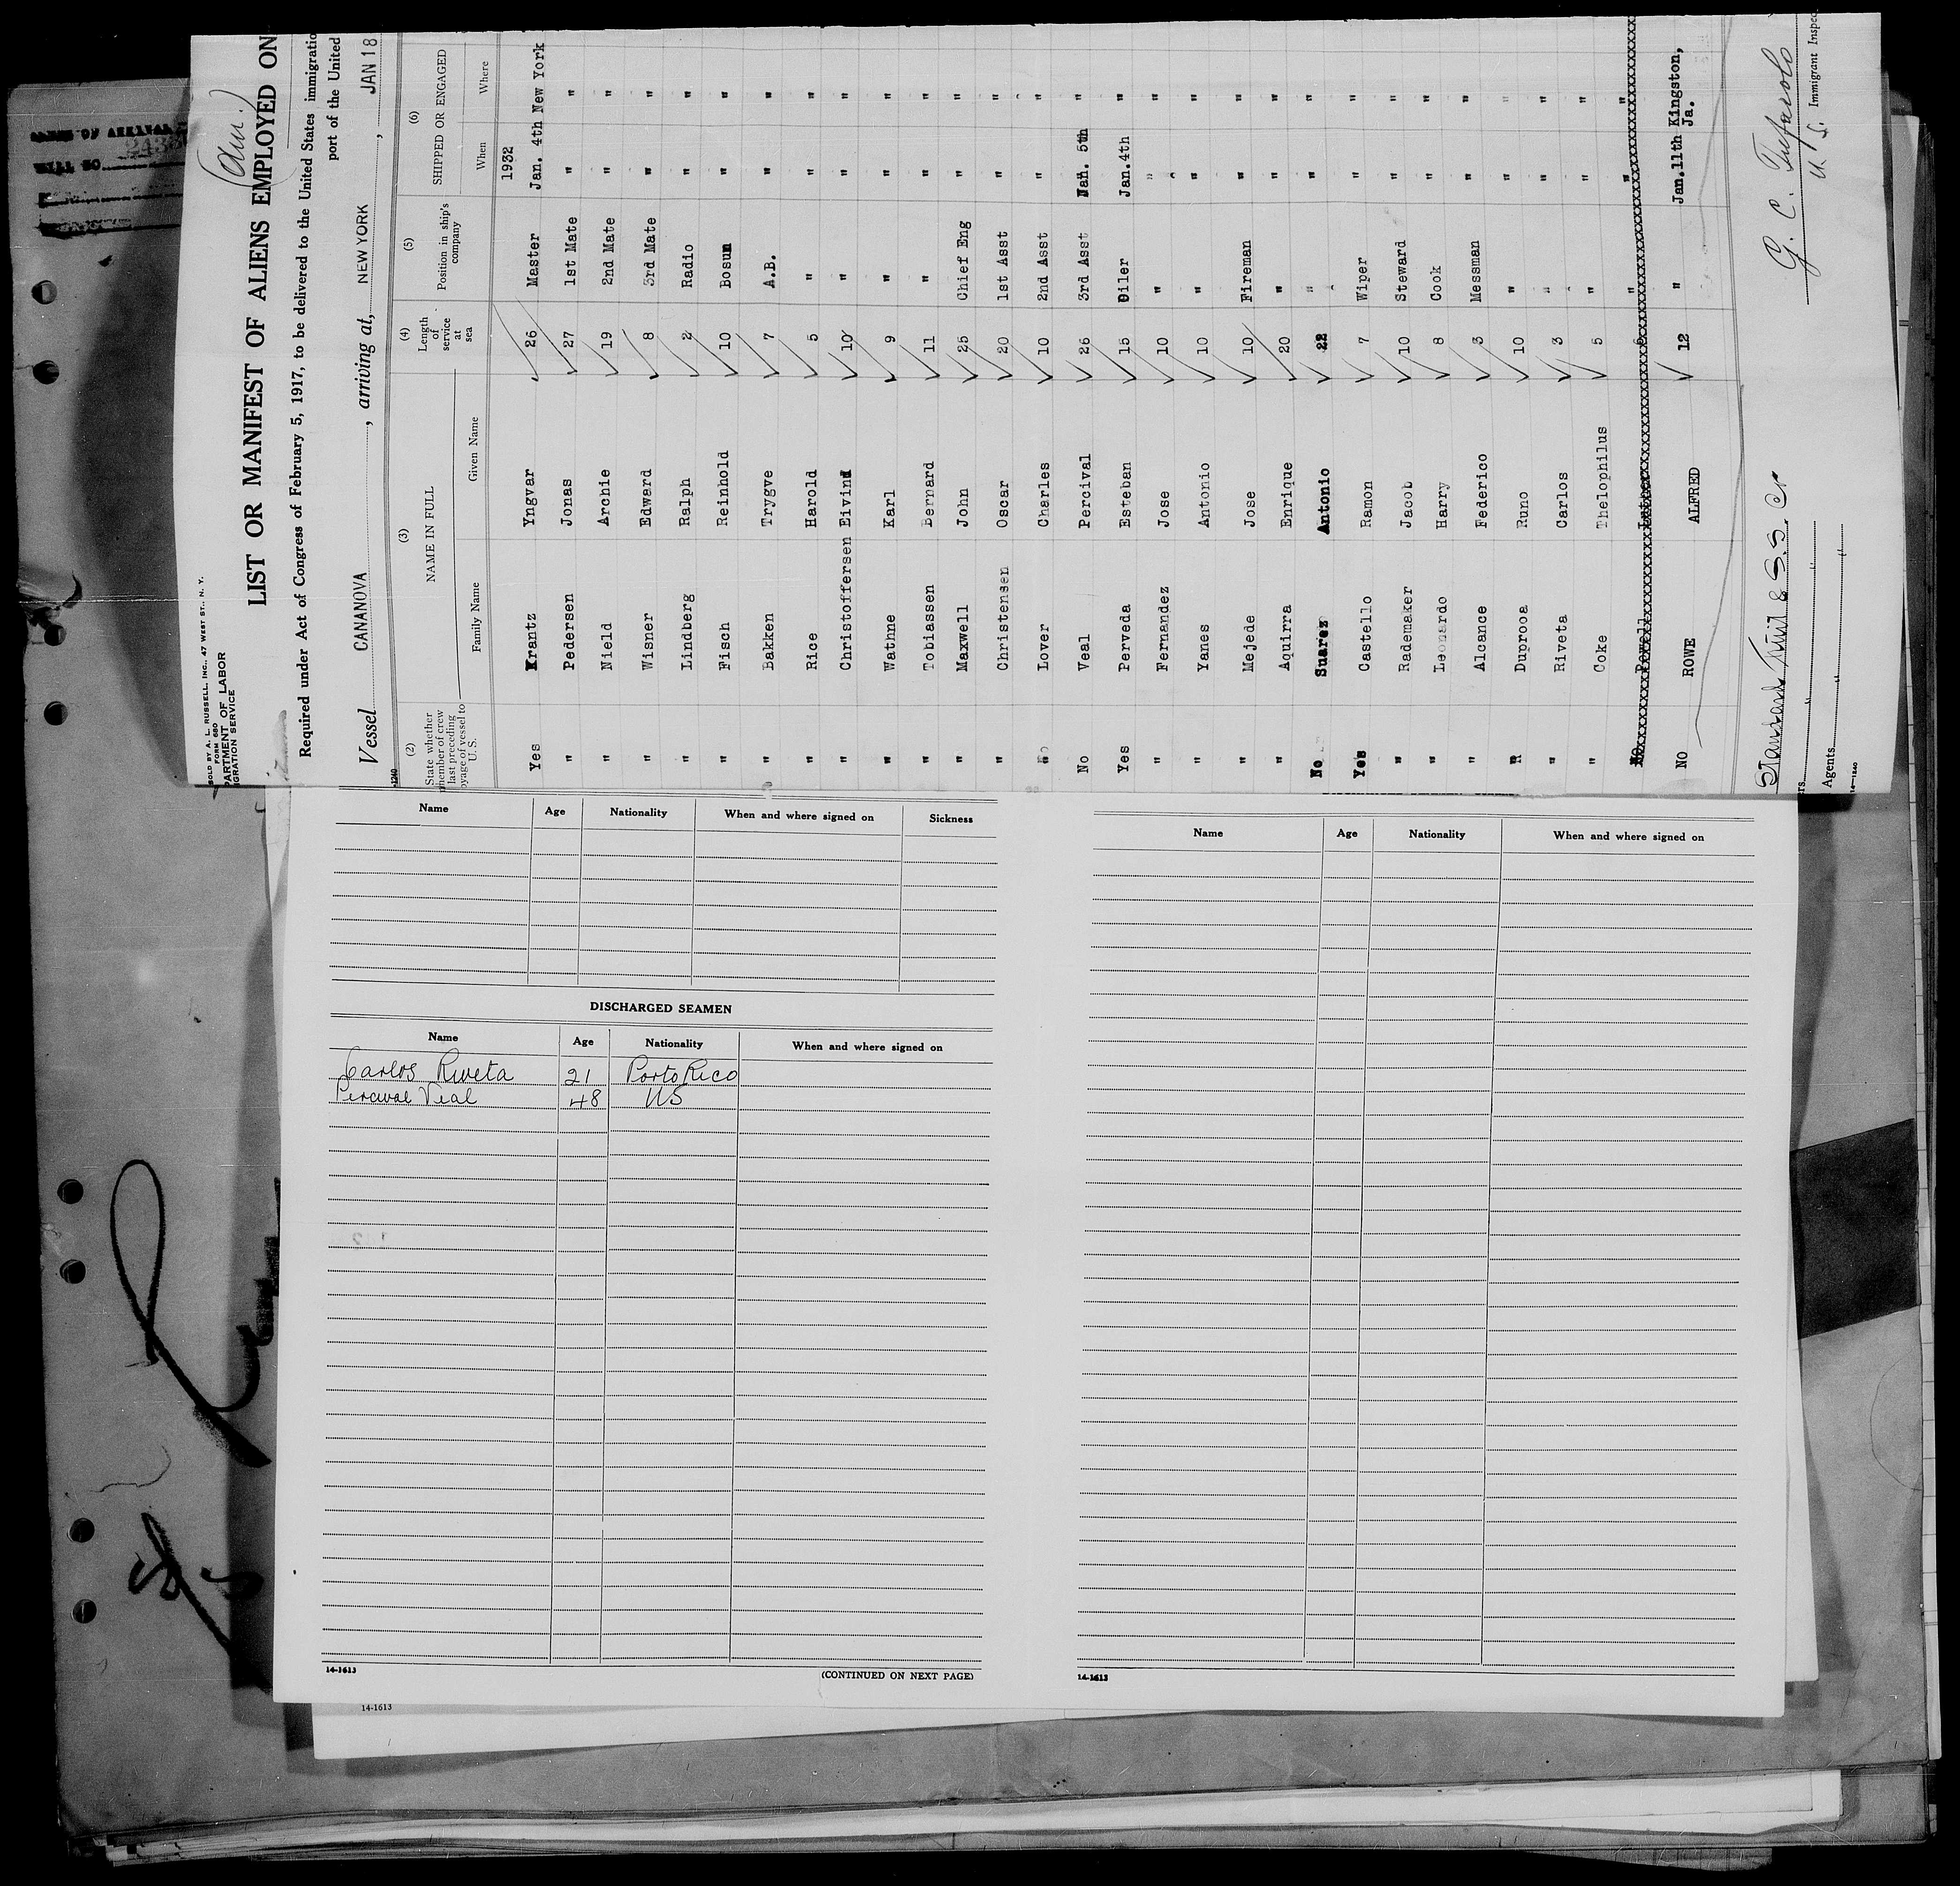 (Am.)
SOLD BY A. L. RUSSELL, INC., 47 WEST ST., N. Y.
FORM 680
PARTMENT OF LABOR
GRATION SERVICE
LIST OR MANIFEST OF ALIENS EMPLOYED ON
Required under Act of Congress of February 5, 1917, to be delivered to the United States immigratio
port of the United
Vessel CANANOVA, arriving at, NEW YORK, JAN 18
(2) (3) (4) (5) (6)
State whether member of crew last preceding oyage of vessel to U. S.
NAME IN FULL
Family Name Given Name
Length of service at sea
Position in ship's company
SHIPPED OR ENGAGED
When Where
1932
Yes Krantz Yngvar 26 Master Jan. 4th New York
" Pedersen Jonas 27 1st Mate " "
" Nield Archie 19 2nd Mate " "
" Wisner Edward 8 3rd Mate " "
" Lindberg Ralph 2 Radio " "
" Fisch Reinhold 10 Bosun " "
" Bakken Trygve 7 A.B. " "
" Rice Harold 5 " " "
" Christoffersen Eivind 10 " " "
" Wathne Karl 9 " " "
" Tobiassen Bernard 11 " " "
" Maxwell John 25 Chief Eng " "
" Christensen Oscar 20 1st Asst " "
No Lover Charles 10 2nd Asst " "
No Veal Percival 26 3rd Asst Jan. 5th "
Yes Perveda Esteban 15 Oiler Jan.4th "
" Fernandez Jose 10 " " "
" Yanes Antonio 10 " " "
" Mejede Jose 10 Fireman " "
" Aquirra Enrique 20 " " "
No Suarez Antonio 22 " " "
Yes Castello Ramon 7 Wiper " "
" Rademaker Jacob 10 Steward " "
" Leonardo Harry 8 Cook " "
" Alcance Federico 3 Messman " "
" Duprooa Runo 10 " " "
" Riveta Carlos 3 " " "
" Coke Thelophilus 5 " " "
NO ROWE ALFRED 12 " Jan.11th Kingston, Ja.
S.S. Co
Agents
G. C.
U. S. Immigrant Inspec
14-1240
Name Age Nationality When and where signed on Sickness
DISCHARGED SEAMEN
Name Age Nationality When and where signed on
Carlos Riveta 21 Porto Rico
Percival Veal 48 US
14-1613
(CONTINUED ON NEXT PAGE)
Name Age Nationality When and where signed on
14-1613
14-1613